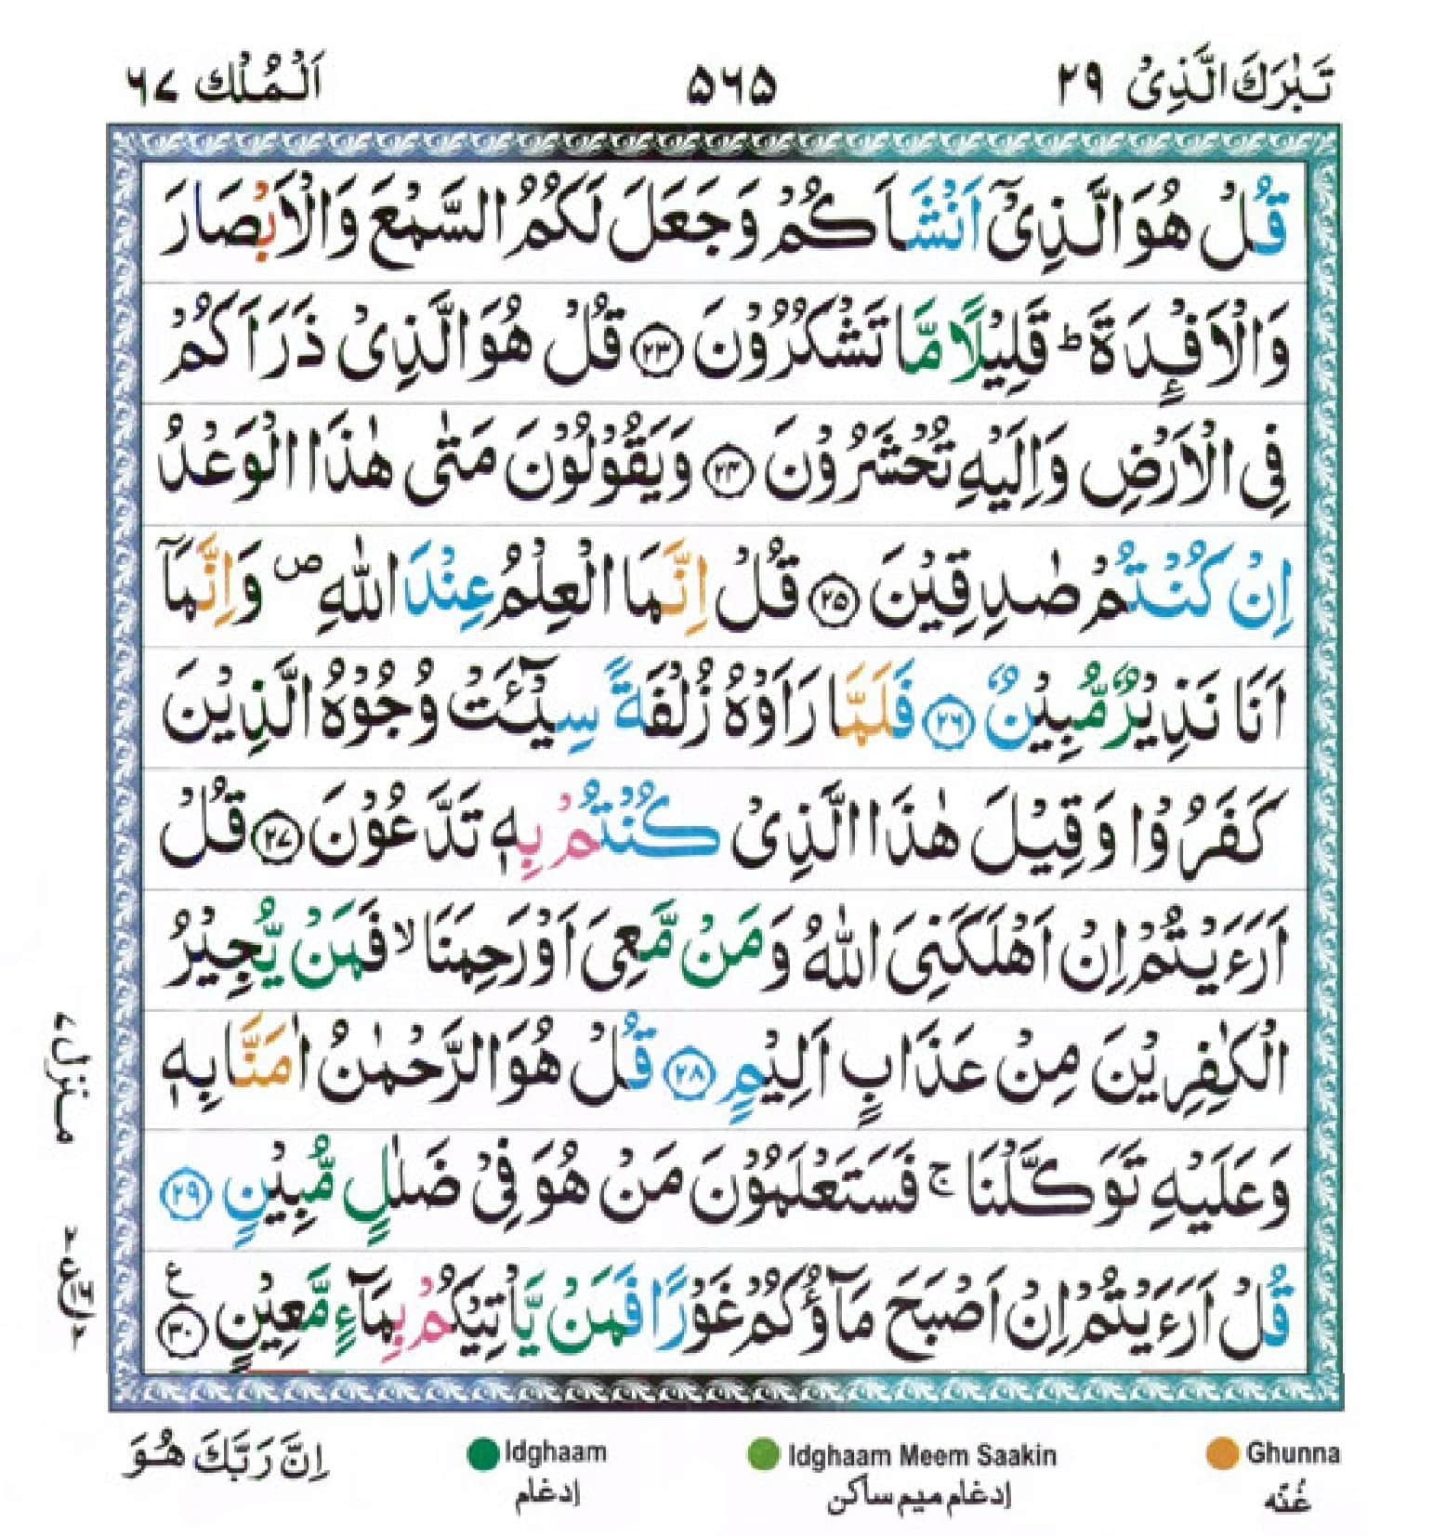 تَبٰرَكَ الَّذِیْ ۲۹
۵۶۵
اَلْمُلْك ۶۷
قُلْ هُوَ الَّذِیْۤ اَنْشَاَكُمْ وَجَعَلَ لَكُمُ السَّمْعَ وَالْاَبْصَارَ
وَالْاَفْـِٕدَةَ ؕ قَلِیْلًا مَّا تَشْكُرُوْنَ ۲۳ قُلْ هُوَ الَّذِیْ ذَرَاَكُمْ
فِی الْاَرْضِ وَاِلَیْهِ تُحْشَرُوْنَ ۲۴ وَیَقُوْلُوْنَ مَتٰی هٰذَا الْوَعْدُ
اِنْ كُنْتُمْ صٰدِقِیْنَ ۲۵ قُلْ اِنَّمَا الْعِلْمُ عِنْدَ اللّٰهِ ۪ وَاِنَّمَاۤ
اَنَا نَذِیْرٌ مُّبِیْنٌ ۲۶ فَلَمَّا رَاَوْهُ زُلْفَةً سِیْٓـَٔتْ وُجُوْهُ الَّذِیْنَ
كَفَرُوْا وَقِیْلَ هٰذَا الَّذِیْ كُنْتُمْ بِهٖ تَدَّعُوْنَ ۲۷ قُلْ
اَرَءَیْتُمْ اِنْ اَهْلَكَنِیَ اللّٰهُ وَمَنْ مَّعِیَ اَوْ رَحِمَنَا ۙ فَمَنْ یُّجِیْرُ
الْكٰفِرِیْنَ مِنْ عَذَابٍ اَلِیْمٍ ۲۸ قُلْ هُوَ الرَّحْمٰنُ اٰمَنَّا بِهٖ
وَعَلَیْهِ تَوَكَّلْنَا ۚ فَسَتَعْلَمُوْنَ مَنْ هُوَ فِیْ ضَلٰلٍ مُّبِیْنٍ ۲۹
قُلْ اَرَءَیْتُمْ اِنْ اَصْبَحَ مَآؤُكُمْ غَوْرًا فَمَنْ یَّاْتِیْكُمْ بِمَآءٍ مَّعِیْنٍ ۳۰ ع
منزل ۷
اِنَّ رَبَّكَ هُوَ
Idghaam
ادغام
Idghaam Meem Saakin
ادغام میم ساکن
Ghunna
غُنّه